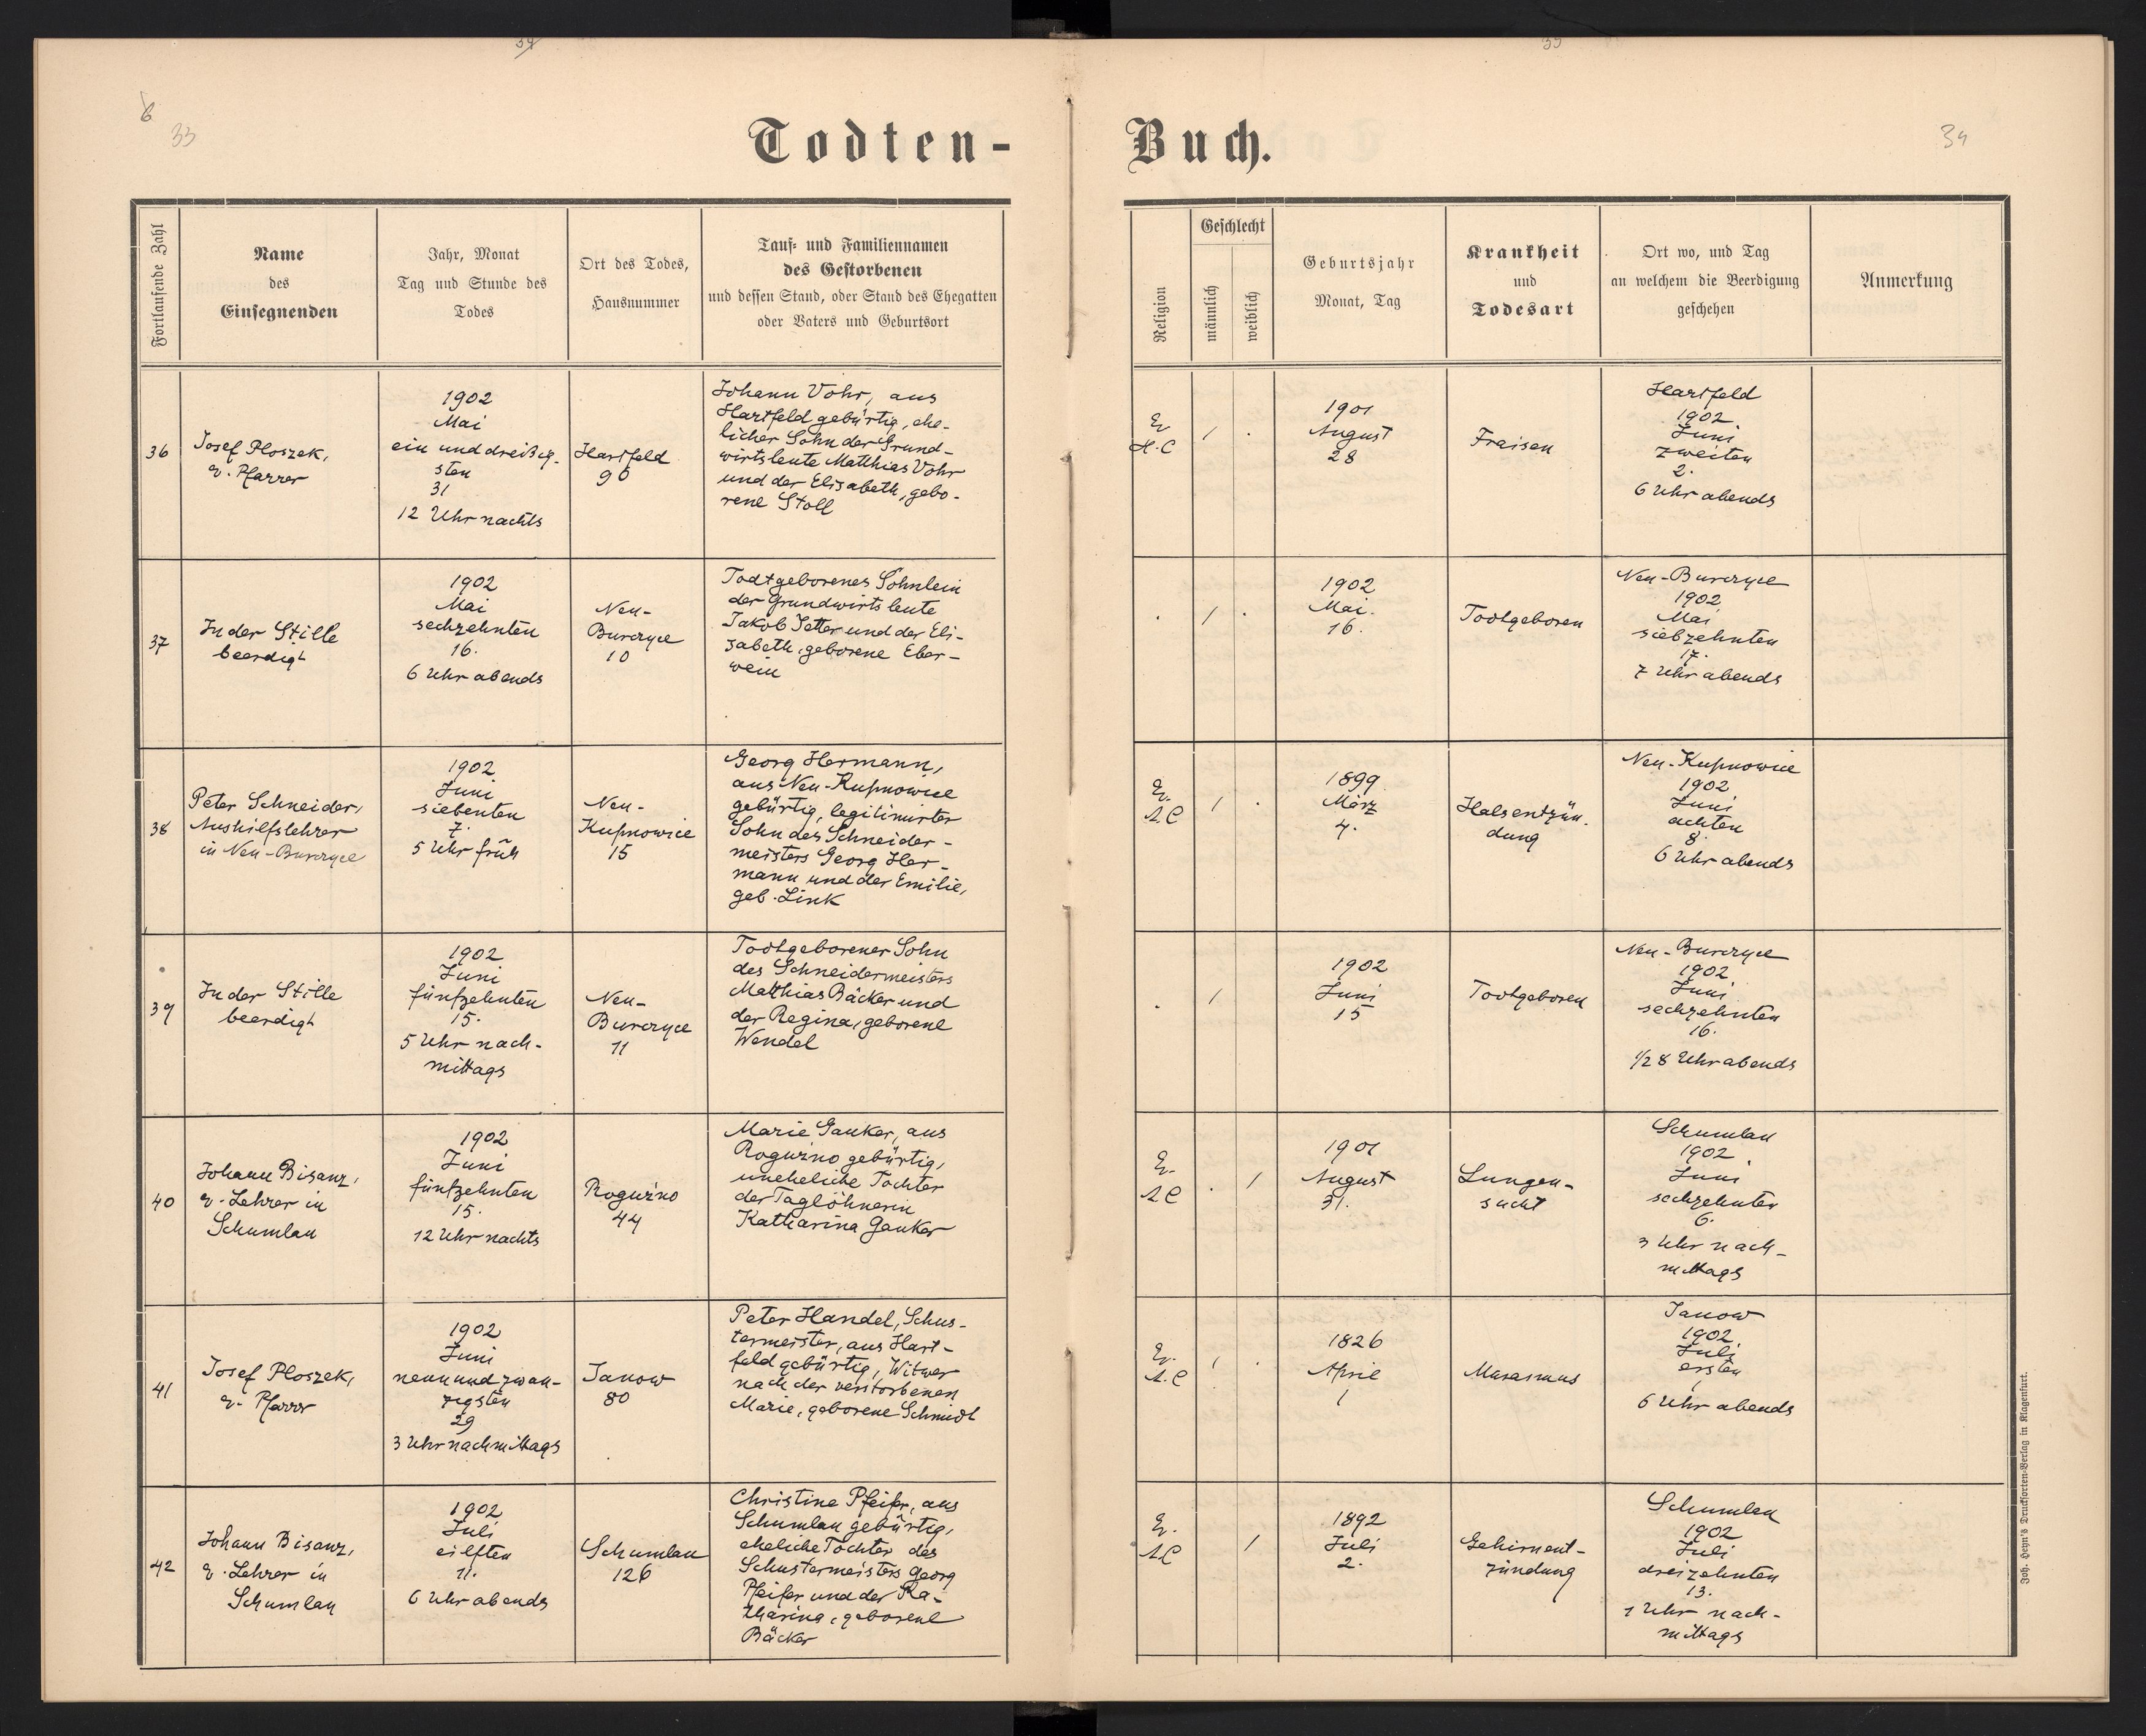 33
34
Todten-
Buch.
Fortlaufende Zahl
Name
des
Einsegnenden
Jahr, Monat
Tag und Stunde des
Todes
Ort des Todes,
Hausnummer
Tauf- und Familiennamen
des Gestorbenen
und dessen Stand, oder Stand des Ehegatten
oder Vaters und Geburtsort
Religion
Geschlecht
männlich
weiblich
Geburtsjahr
Monat, Tag
Krankheit
und
Todesart
Ort wo, und Tag
an welchem die Beerdigung
geschehen
Anmerkung
36
Josef Ploszek,
ev. Pfarrer
1902
Mai
ein und dreißig-
sten
31
12 Uhr nachts
Hartfeld
90
Johann Vohr, aus
Hartfeld gebürtig, ehe-
licher Sohn der Grund-
wirtsleute Matthias Vohr
und der Elisabeth, gebo-
rene Stoll
Ev
H.C
1 .
1901
August
28
Fraisen
Hartfeld
1902
Juni
zweiten
2.
6 Uhr abends
37
In der Stille
beerdigt
1902
Mai
sechzehnten
16.
6 Uhr abends
Neu-
Burczyce
10
Todtgeborenes Söhnlein
der Grundwirtsleute
Jakob Jetter und der Eli-
sabeth, geborene Eber-
wein
. 1 .
1902
Mai.
16.
Todtgeboren
Neu-Burczyce
1902
Mai
siebzehnten
17.
7 Uhr abends
38
Peter Schneider,
Aushilfslehrer
in Neu-Burczyce
1902
Juni
siebenten
7.
5 Uhr früh
Neu-
Kupnowice
15
Georg Hermann,
aus Neu-Kupnowice
gebürtig, legitimirter
Sohn des Schneider-
meisters Georg Her-
mann und der Emilie,
geb. Link
Ev.
A.C
1 .
1899
März
4.
Halsentzün-
dung
Neu-Kupnowice
1902
Juni
achten
8.
6 Uhr abends
39
In der Stille
beerdigt
1902
Juni
fünfzehnten
15.
5 Uhr nach-
mittags
Neu-
Burczyce
11
Todtgeborener Sohn
des Schneidermeisters
Matthias Bäcker und
der Regina, geborene
Wendel
. 1
1902
Juni
15
Todtgeboren
Neu-Burczyce
1902
Juni
sechzehnten
16.
1/2 8 Uhr abends
40
Johann Bisanz,
ev. Lehrer in
Schumlau
1902
Juni
fünfzehnten
15.
12 Uhr nachts
Roguźno
44
Marie Gauker, aus
Roguźno gebürtig,
uneheliche Tochter
der Taglöhnerin
Katharina Gauker
Ev.
A.C
. 1
1901
August
31.
Lungen-
sucht
Schumlau
1902
Juni
sechzehnten
6.
3 Uhr nach-
mittags
41
Josef Ploszek,
ev. Pfarrr
1902
Juni
neunundzwan-
zigsten
29
3 Uhr nachmittags
Janow
80
Peter Handel, Schus-
termeister, aus Hart-
feld gebürtig, Witwer
nach der verstorbenen
Marie, geborene Schmidt
Ev.
A.C
1 .
1826
April
1
Marasmus
Janow
1902
Juli
ersten
1
6 Uhr abends
42
Johann Bisanz,
ev. Lehrer in
Schumlau
1902
Juli
eilften
11.
6 Uhr abends
Schumlau
126
Christine Pfeifer, aus
Schumlau gebürtig,
eheliche Tochter des
Schustermeisters Georg
Pfeifer und der Ka-
tharina, geborene
Bäcker
Ev.
A.C
1
1892
Juli
2.
Gehirnent-
zündung
Schumlau
1902
Juli
dreizehnten
13.
1 Uhr nach-
mittags
Joh. Heyn's Drucksorten-Verlag in Klagenfurt.